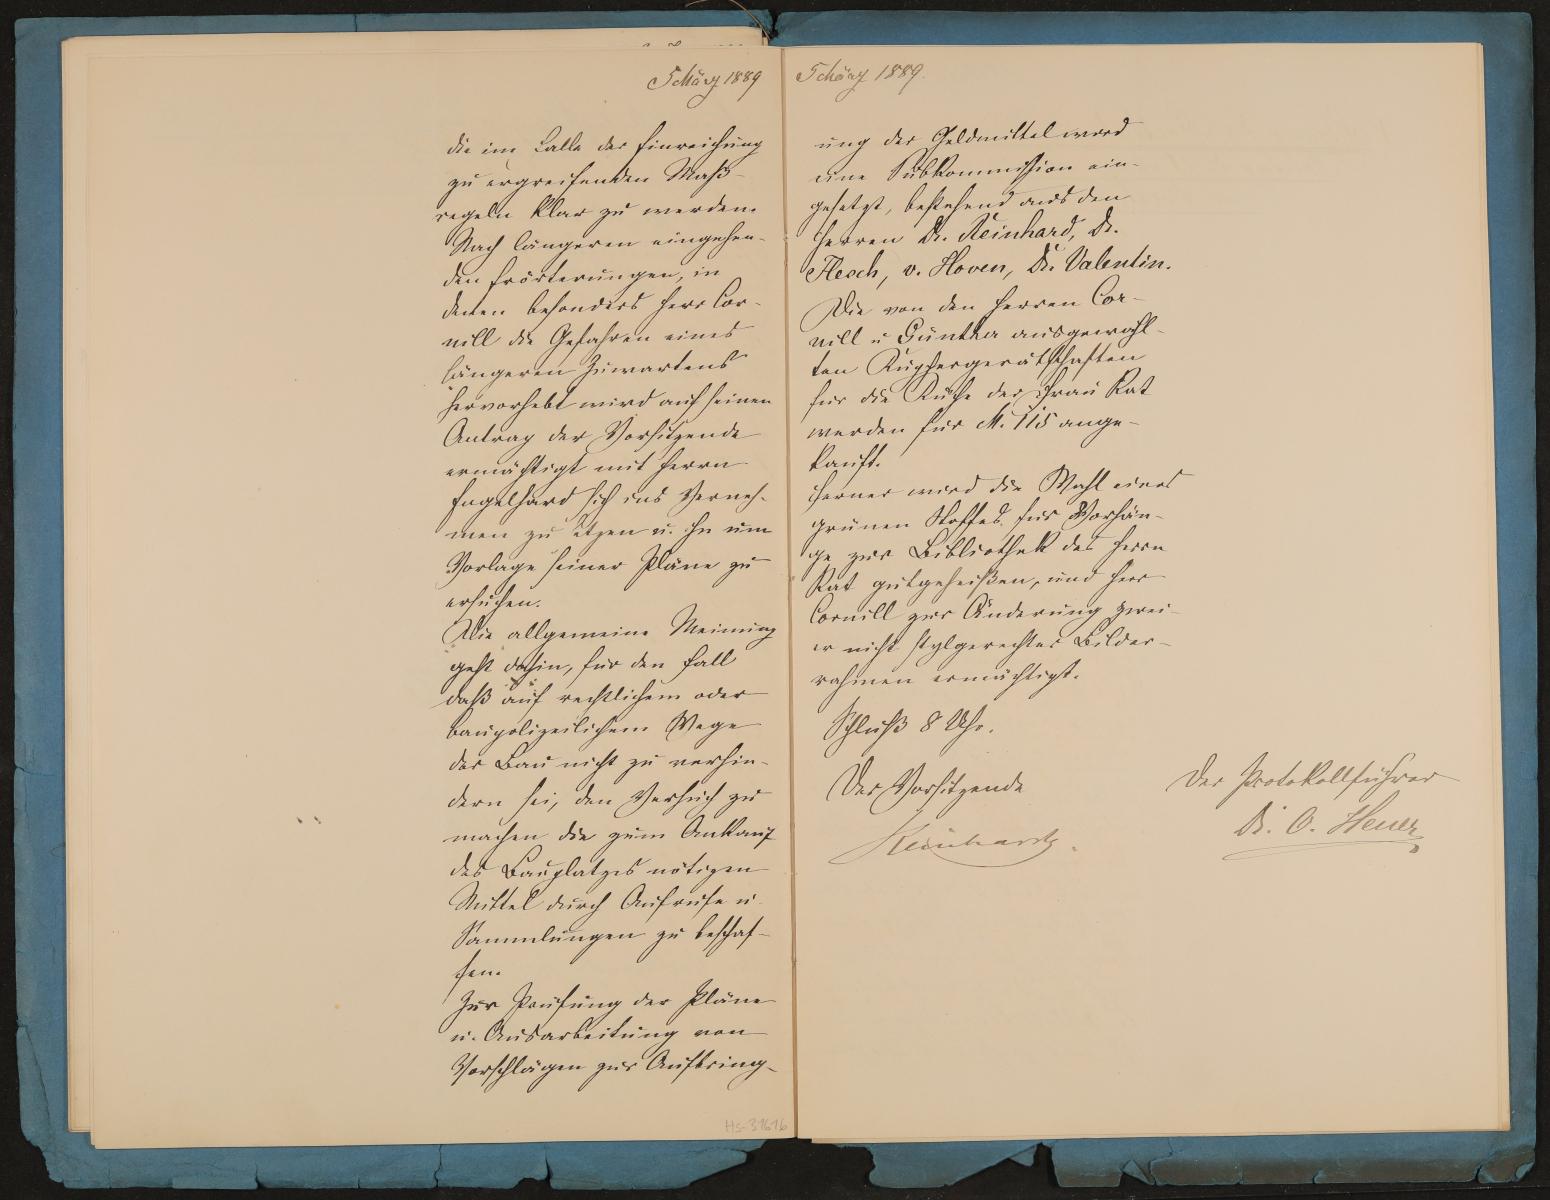 5 März 1889
die im Falle der Einreichung
zu ergreifenden Maß-
regeln klar zu werden.
Nach längeren eingehen-
den Erörterungen, in
denen besonders Herr Cor-
nill die Gefahren eines
längeren Zuwartens
hervorhebt wird auf seinen
Antrag der Vorsitzende
ermächtigt mit Herrn
Engelhard sich ins Verneh-
men zu setzen u. ihn um
Vorlage seiner Pläne zu
ersuchen.
Die allgemeine Meinung
geht dahin, für den Fall
daß auf rechtlichem oder
baupolizeilichem Wege
der Bau nicht zu verhin-
dern sei, den Versuch zu
machen die zum Ankauf
des Bauplatzes nötigen
Mittel durch Aufrufe u.
Sammlungen zu beschaf-
fen.
Zur Prüfung der Pläne
u. Ausarbeitung von
Vorschlägen zur Aufbring-
Hs-31616
5 März 1889.
ung der Geldmittel wird
eine Subkommission ein-
gesetzt, bestehend aus den
Herren Dr. Reinhard, Dr.
Flesch, v. Hoven, Dr. Valentin.
Die von den Herren Cor-
nill u Günther ausgewähl-
ten Kupfergerätschaften
für die Küche der Frau Rat
werden für M. 115 ange-
kauft.
Ferner wird die Wahl eines
grünen Stoffes für Vorhän-
ge zur Bibliothek des Herrn
Rat gutgeheißen, und Herr
Cornill zur Änderung zwei-
er nicht stylgerechter Bilder-
rahmen ermächtigt.
Schluß 8 Uhr.
Der Vorsitzende
Reinhard.
Der Protokollführer
Dr. O. Heuer